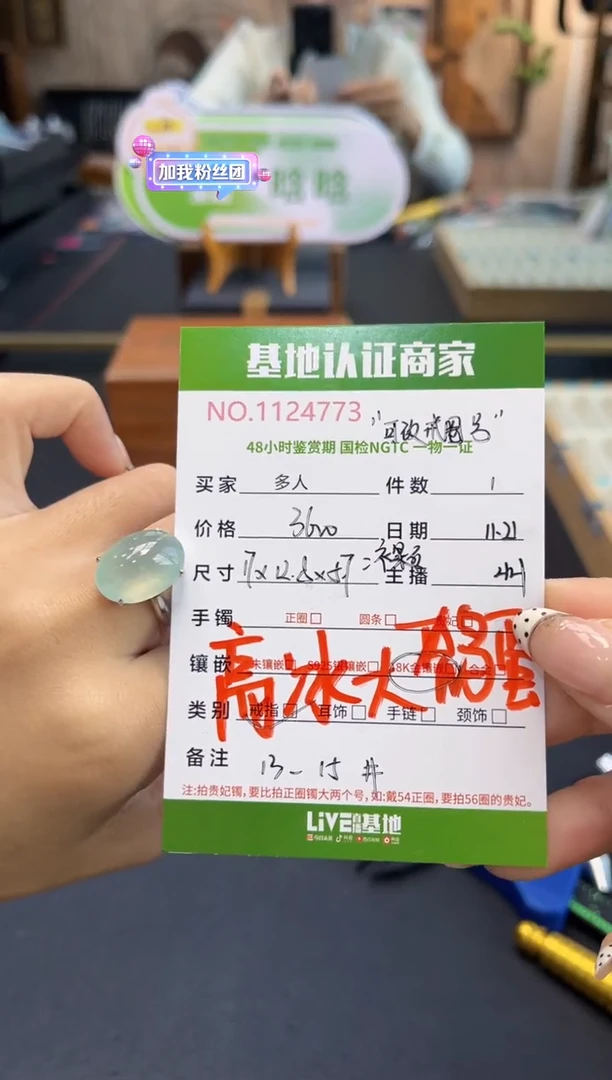 加我粉丝团
哈哈
基地认证商家
NO.1124773
"可改戒圈号"
48小时鉴赏期 国检NGTC 一物一证
买家 多人 件数 1
价格 3600 日期 11.21
尺寸 17x12.8x5.7 =裸石 主播
手镯 正圈□ 圆条□ 贵妃□
镶嵌 未镶嵌□ S925银镶嵌□ 18K金镶嵌□ 合金□
高冰大鸽蛋
类别 戒指□ 耳饰□ 手链□ 颈饰□
备注 13-15#
注:拍贵妃镯,要比拍正圈镯大两个号,如:戴54正圈,要拍56圈的贵妃。
LiVE直播基地